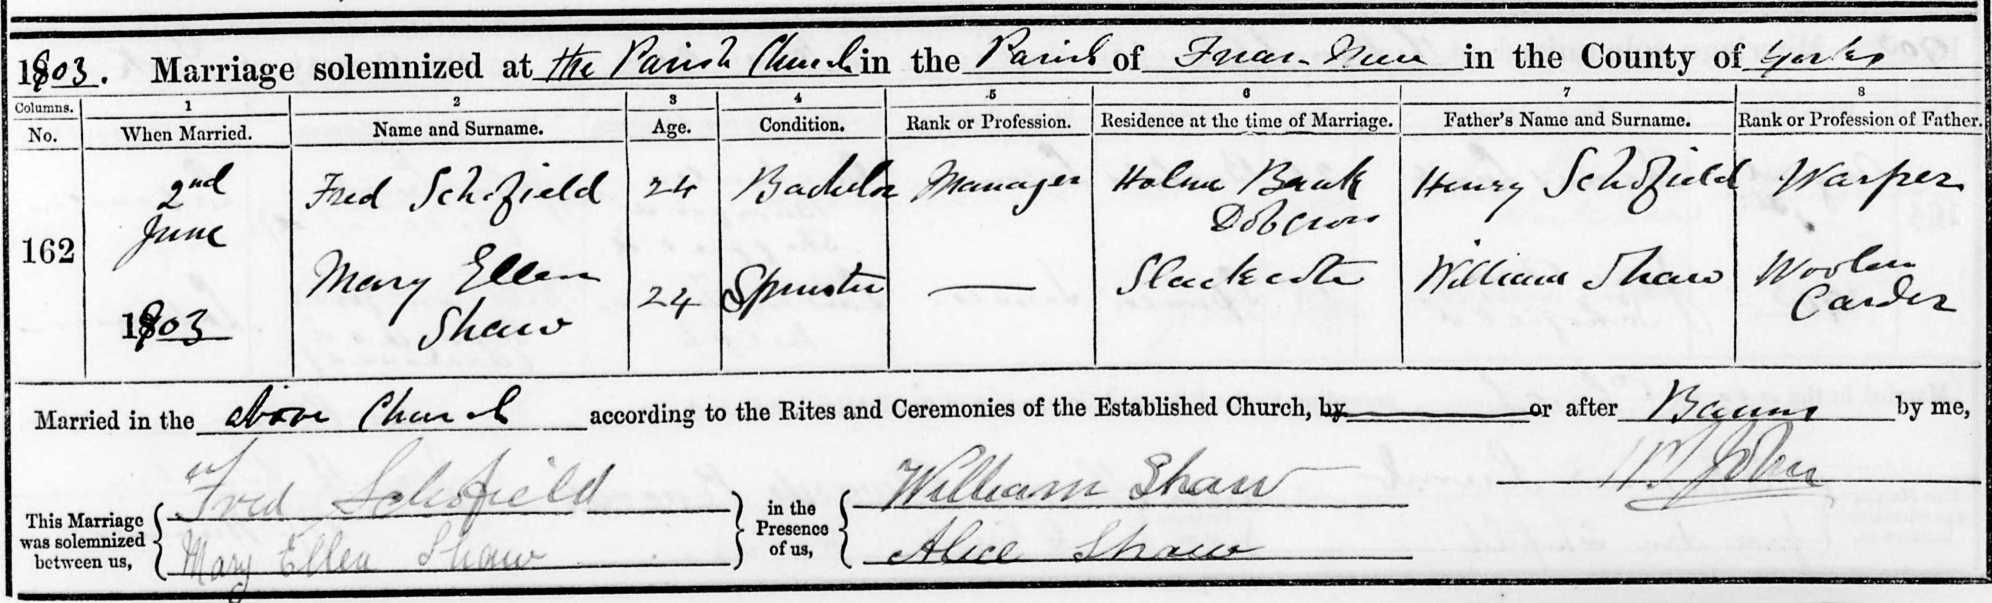 1903. Marriage solemnized at the Parish Church in the Parish of Friar-Mere in the County of Yorks
Columns. 1 2 3 4 5 6 7 8
No. When Married. Name and Surname. Age. Condition. Rank or Profession. Residence at the time of Marriage. Father's Name and Surname. Rank or Profession of Father.
162 2nd June 1903 Fred Schofield 24 Bachelor Manager Holme Bank Dobcross Henry Schofield Warper
Mary Ellen Shaw 24 Spinster — Slackcote William Shaw Woolen Carder
Married in the above Church according to the Rites and Ceremonies of the Established Church, by or after Banns by me,
Fred Schofield William Shaw
This Marriage was solemnized between us, in the Presence of us,
Mary Ellen Shaw Alice Shaw